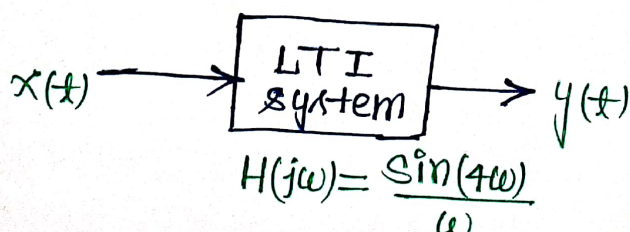 x(t)
LTI
system
y(t)
H(jω)= sin(4ω)
ω